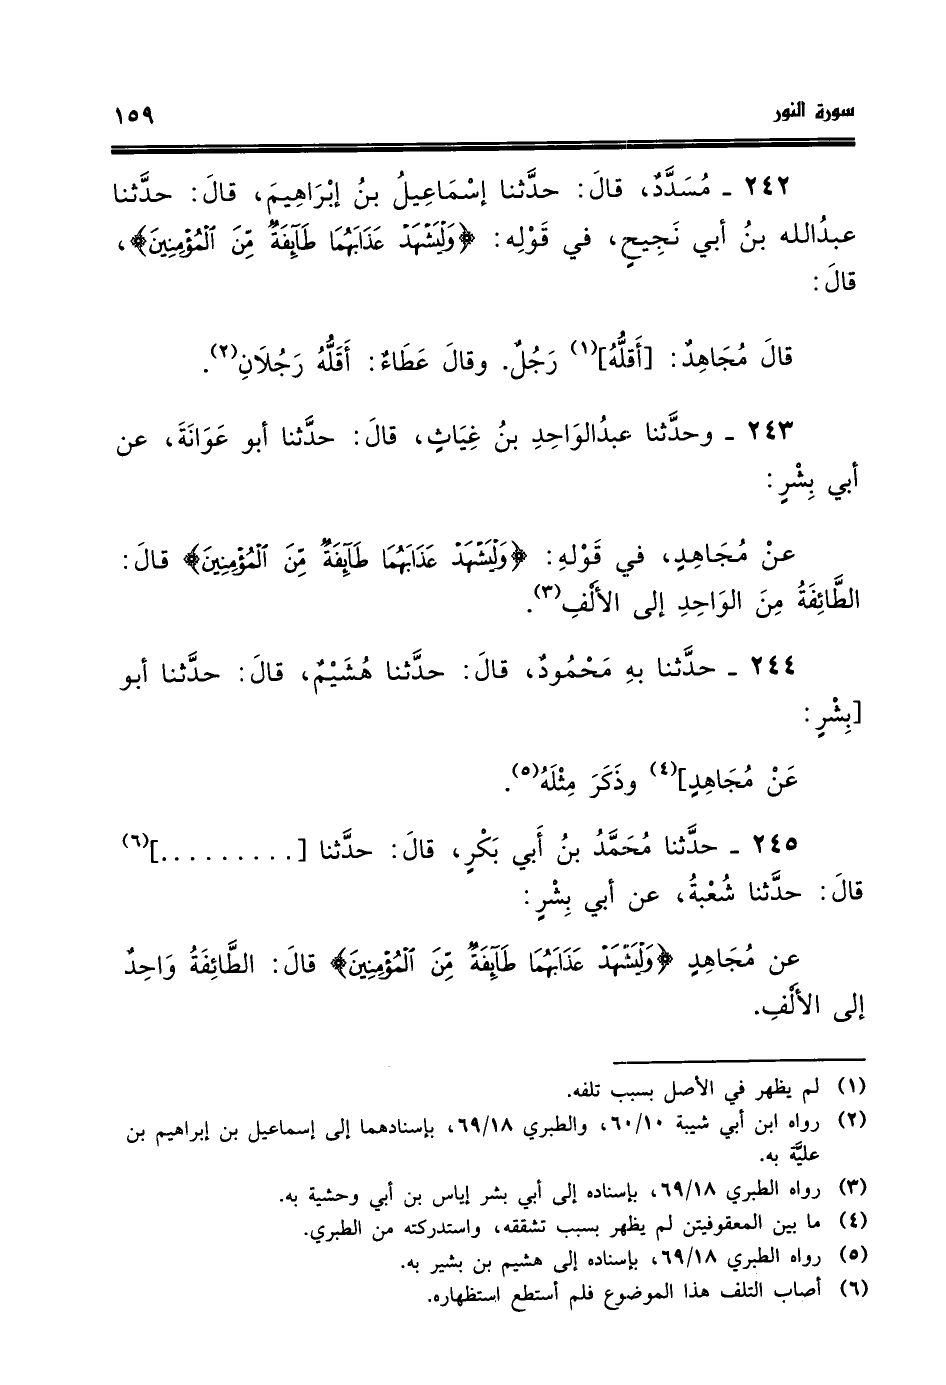 سورة النور ١٥٩
٢٤٢ ـ مُسَدَّدٌ، قالَ: حدَّثنا إسْمَاعِيلُ بنُ إبْرَاهِيمَ، قالَ: حدَّثنا
عبدُالله بنُ أبي نَجِيحٍ، في قَوْلِه: ﴿وَلْيَشْهَدْ عَذَابَهُمَا طَآئِفَةٌ مِّنَ ٱلْمُؤْمِنِينَ﴾،
قالَ:
قالَ مُجَاهِدٌ: [أَقلُّهُ](١) رَجُلٌ. وقالَ عَطَاءٌ: أَقَلُّهُ رَجُلَانِ(٢).
٢٤٣ ـ وحدَّثنا عبدُالوَاحِدِ بنُ غِيَاثٍ، قالَ: حدَّثنا أبو عَوَانَةَ، عن
أبي بِشْرٍ:
عنْ مُجَاهِدٍ، في قَوْلهِ: ﴿وَلْيَشْهَدْ عَذَابَهُمَا طَآئِفَةٌ مِّنَ ٱلْمُؤْمِنِينَ﴾ قالَ:
الطَّائِفَةُ مِنَ الوَاحِدِ إلى الألْفِ(٣).
٢٤٤ ـ حدَّثنا بهِ مَحْمُودٌ، قالَ: حدَّثنا هُشَيْمٌ، قالَ: حدَّثنا أبو
[بِشْرٍ:
عَنْ مُجَاهِدٍ](٤) وذَكَرَ مِثْلَهُ(٥).
٢٤٥ ـ حدَّثنا مُحَمَّدُ بنُ أَبي بَكْرٍ، قالَ: حدَّثنا [.........](٦)
قالَ: حدَّثنا شُعْبةُ، عن أبي بِشْرٍ:
عن مُجَاهِدٍ ﴿وَلْيَشْهَدْ عَذَابَهُمَا طَآئِفَةٌ مِّنَ ٱلْمُؤْمِنِينَ﴾ قالَ: الطَّائِفَةُ وَاحِدٌ
إلى الألْفِ.
(١) لم يظهر في الأصل بسبب تلفه.
(٢) رواه ابن أبي شيبة ٦٠/١٠، والطبري ٦٩/١٨، بإسنادهما إلى إسماعيل بن إبراهيم بن
عليَّة به.
(٣) رواه الطبري ٦٩/١٨، بإسناده إلى أبي بشر إياس بن أبي وحشية به.
(٤) ما بين المعقوفيتن لم يظهر بسبب تشققه، واستدركته من الطبري.
(٥) رواه الطبري ٦٩/١٨، بإسناده إلى هشيم بن بشير به.
(٦) أصاب التلف هذا الموضوع فلم أستطع استظهاره.